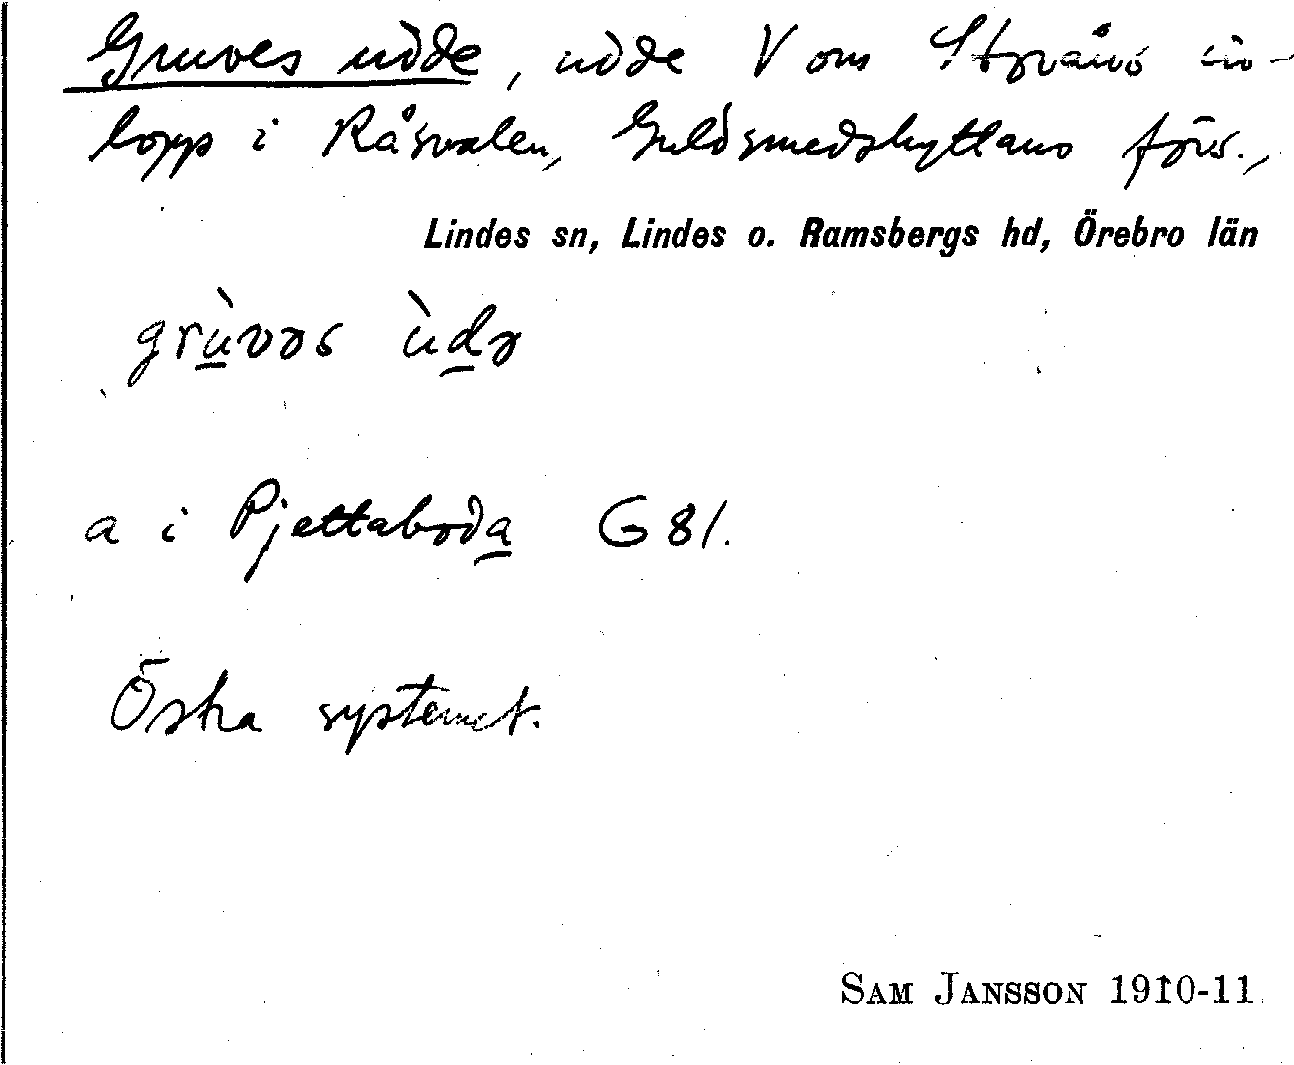 Gruves udde, udde V om Storåns in-
lopp i Råsvalen, Guldsmedshyttans förs.,
Lindes sn, Lindes o. Ramsbergs hd, Örebro län
grùvəs ùdə
a i Pjettaboda G 81.
Östra systemet.
SAM JANSSON 1910-11